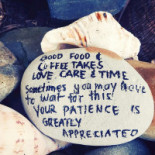 GOOD FOOD &
COFFEE TAKES
LOVE CARE & TIME
Sometimes you may have
to wait for this!
YOUR PATIENCE IS
GREATLY
APPRECIATED